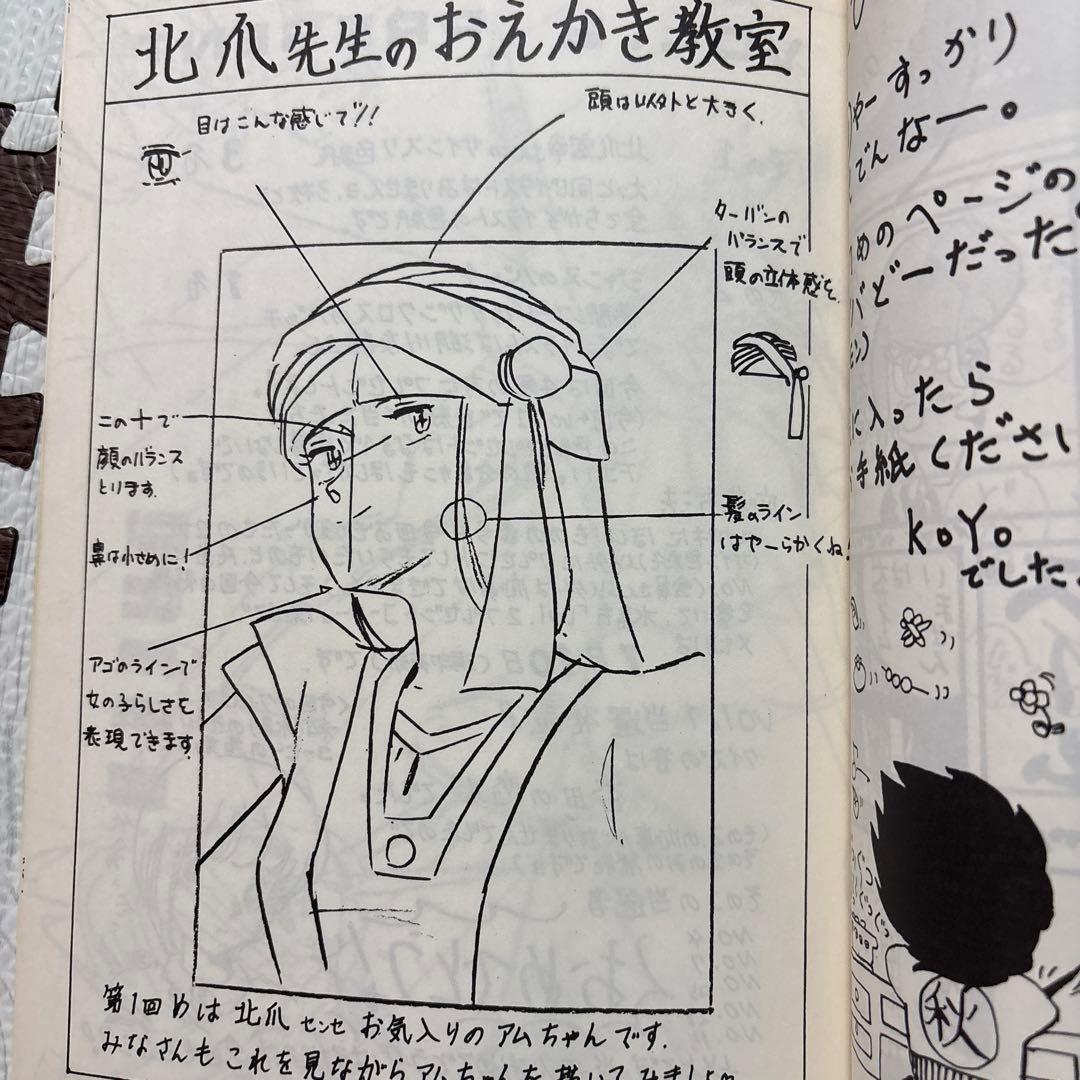 北爪先生のおえかき教室
目はこんな感じで!!
頭は以外と大きく.
ターバンの
バランスで
頭の立体感を.
この十で
顔のバランス
とります.
鼻は小さめに!
髪のライン
はやーらかくね!
アゴのラインで
女の子らしさを
表現できます.
第1回めは北爪センセお気入りのアムちゃんです.
みなさんもこれを見ながらアムちゃんを描いてみましょう
やーすっかり
でんなー。
めのページの
バどーだった
に入ったら
手紙ください
KoYo
でした.
秋